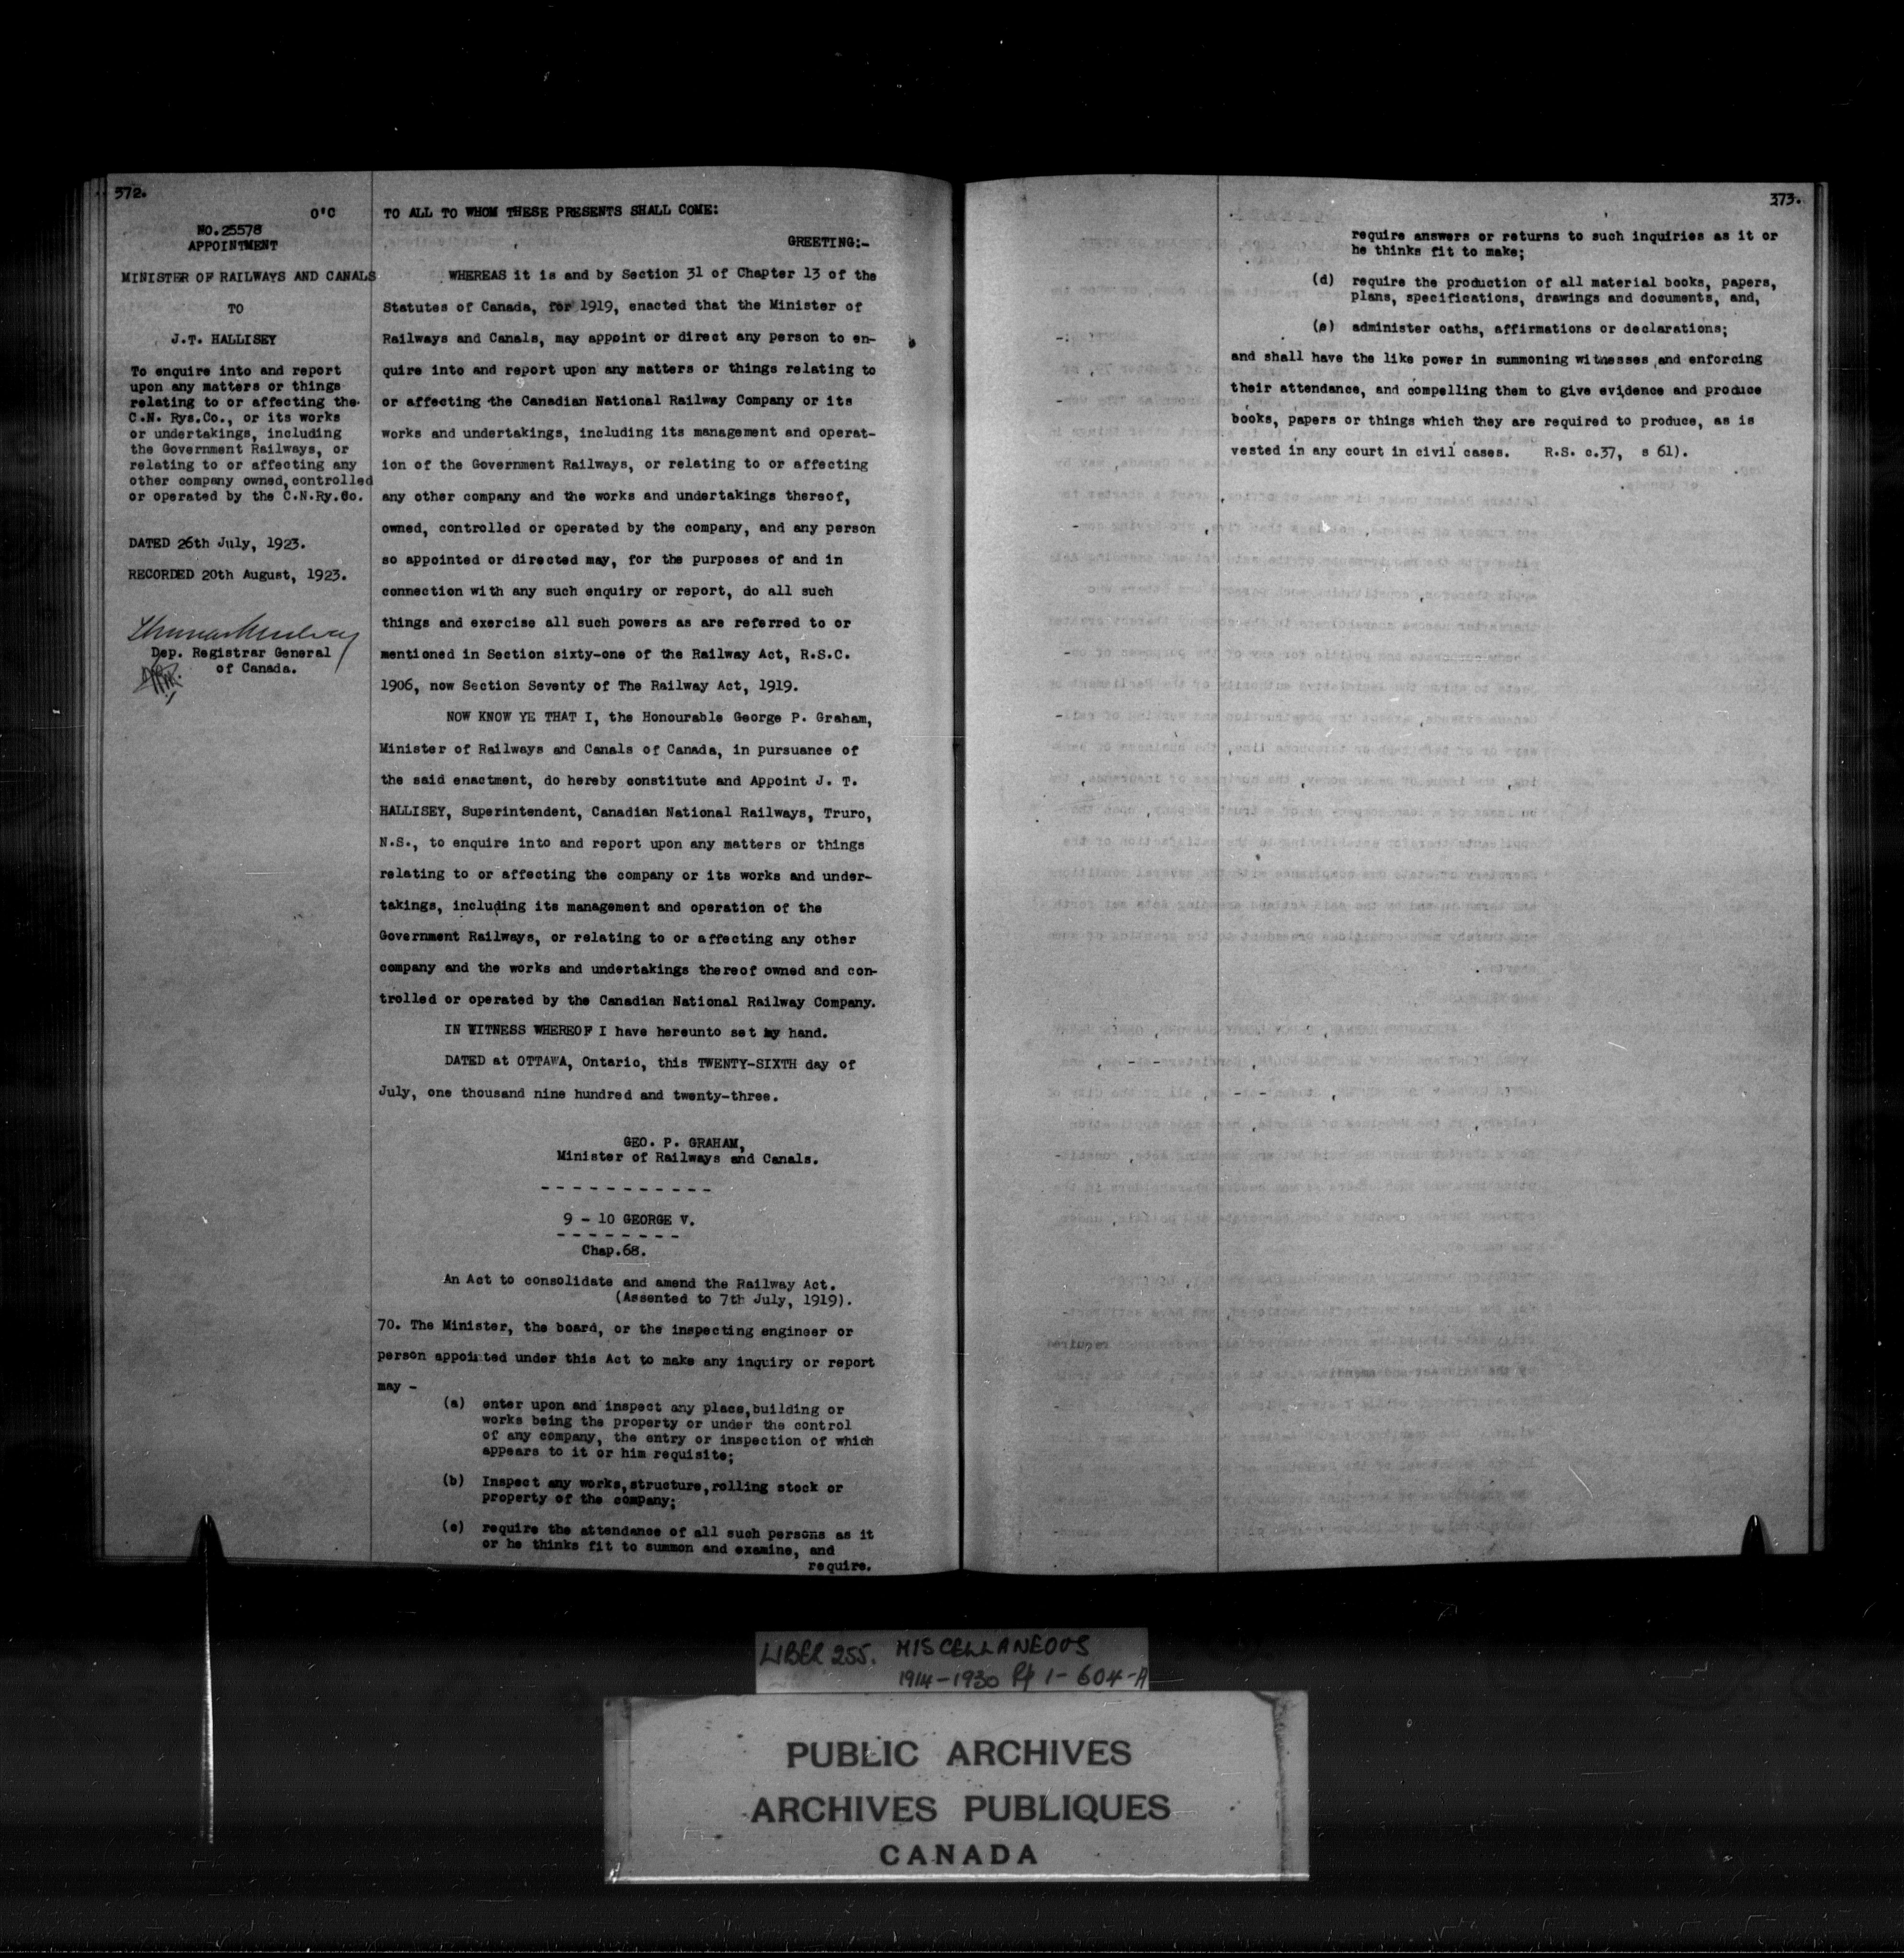 372.
O'C
NO.25578
APPOINTMENT
MINISTER OF RAILWAYS AND CANALS
TO
J.T. HALLISEY
To enquire into and report
upon any matters or things
relating to or affecting the
C.N. Rys.Co., or its works
or undertakings, including
the Government Railways, or
relating to or affecting any
other company owned,controlled
or operated by the C.N.Ry.Co.
DATED 26th July, 1923.
RECORDED 20th August, 1923.
Thomas Mulvey
Dep. Registrar General
of Canada.
TO ALL TO WHOM THESE PRESENTS SHALL COME:
GREETING:-
WHEREAS it is and by Section 31 of Chapter 13 of the
Statutes of Canada, for 1919, enacted that the Minister of
Railways and Canals, may appoint or direct any person to en-
quire into and report upon any matters or things relating to
or affecting the Canadian National Railway Company or its
works and undertakings, including its management and operat-
ion of the Government Railways, or relating to or affecting
any other company and the works and undertakings thereof,
owned, controlled or operated by the company, and any person
so appointed or directed may, for the purposes of and in
connection with any such enquiry or report, do all such
things and exercise all such powers as are referred to or
mentioned in Section sixty-one of the Railway Act, R.S.C.
1906, now Section Seventy of The Railway Act, 1919.
NOW KNOW YE THAT I, the Honourable George P. Graham,
Minister of Railways and Canals of Canada, in pursuance of
the said enactment, do hereby constitute and Appoint J. T.
HALLISEY, Superintendent, Canadian National Railways, Truro,
N.S., to enquire into and report upon any matters or things
relating to or affecting the company or its works and under-
takings, including its management and operation of the
Government Railways, or relating to or affecting any other
company and the works and undertakings thereof owned and con-
trolled or operated by the Canadian National Railway Company.
IN WITNESS WHEREOF I have hereunto set my hand.
DATED at OTTAWA, Ontario, this TWENTY-SIXTH day of
July, one thousand nine hundred and twenty-three.
GEO. P. GRAHAM,
Minister of Railways and Canals.
- - - - - - - - - - -
9 - 10 GEORGE V.
- - - - - - - -
Chap.68.
An Act to consolidate and amend the Railway Act.
(Assented to 7th July, 1919).
70. The Minister, the board, or the inspecting engineer or
person appointed under this Act to make any inquiry or report
may -
(a) enter upon and inspect any place,building or
works being the property or under the control
of any company, the entry or inspection of which
appears to it or him requisite;
(b) Inspect any works,structure,rolling stock or
property of the company;
(c) require the attendance of all such persons as it
or he thinks fit to summon and examine, and
require.
373.
require answers or returns to such inquiries as it or
he thinks fit to make;
(d) require the production of all material books, papers,
plans, specifications, drawings and documents, and,
(e) administer oaths, affirmations or declarations;
and shall have the like power in summoning witnesses and enforcing
their attendance, and compelling them to give evidence and produce
books, papers or things which they are required to produce, as is
vested in any court in civil cases. R.S. c.37, s 61).
LIBER 255. MISCELLANEOUS
1914-1930 Pp 1-604-A
PUBLIC ARCHIVES
ARCHIVES PUBLIQUES
CANADA